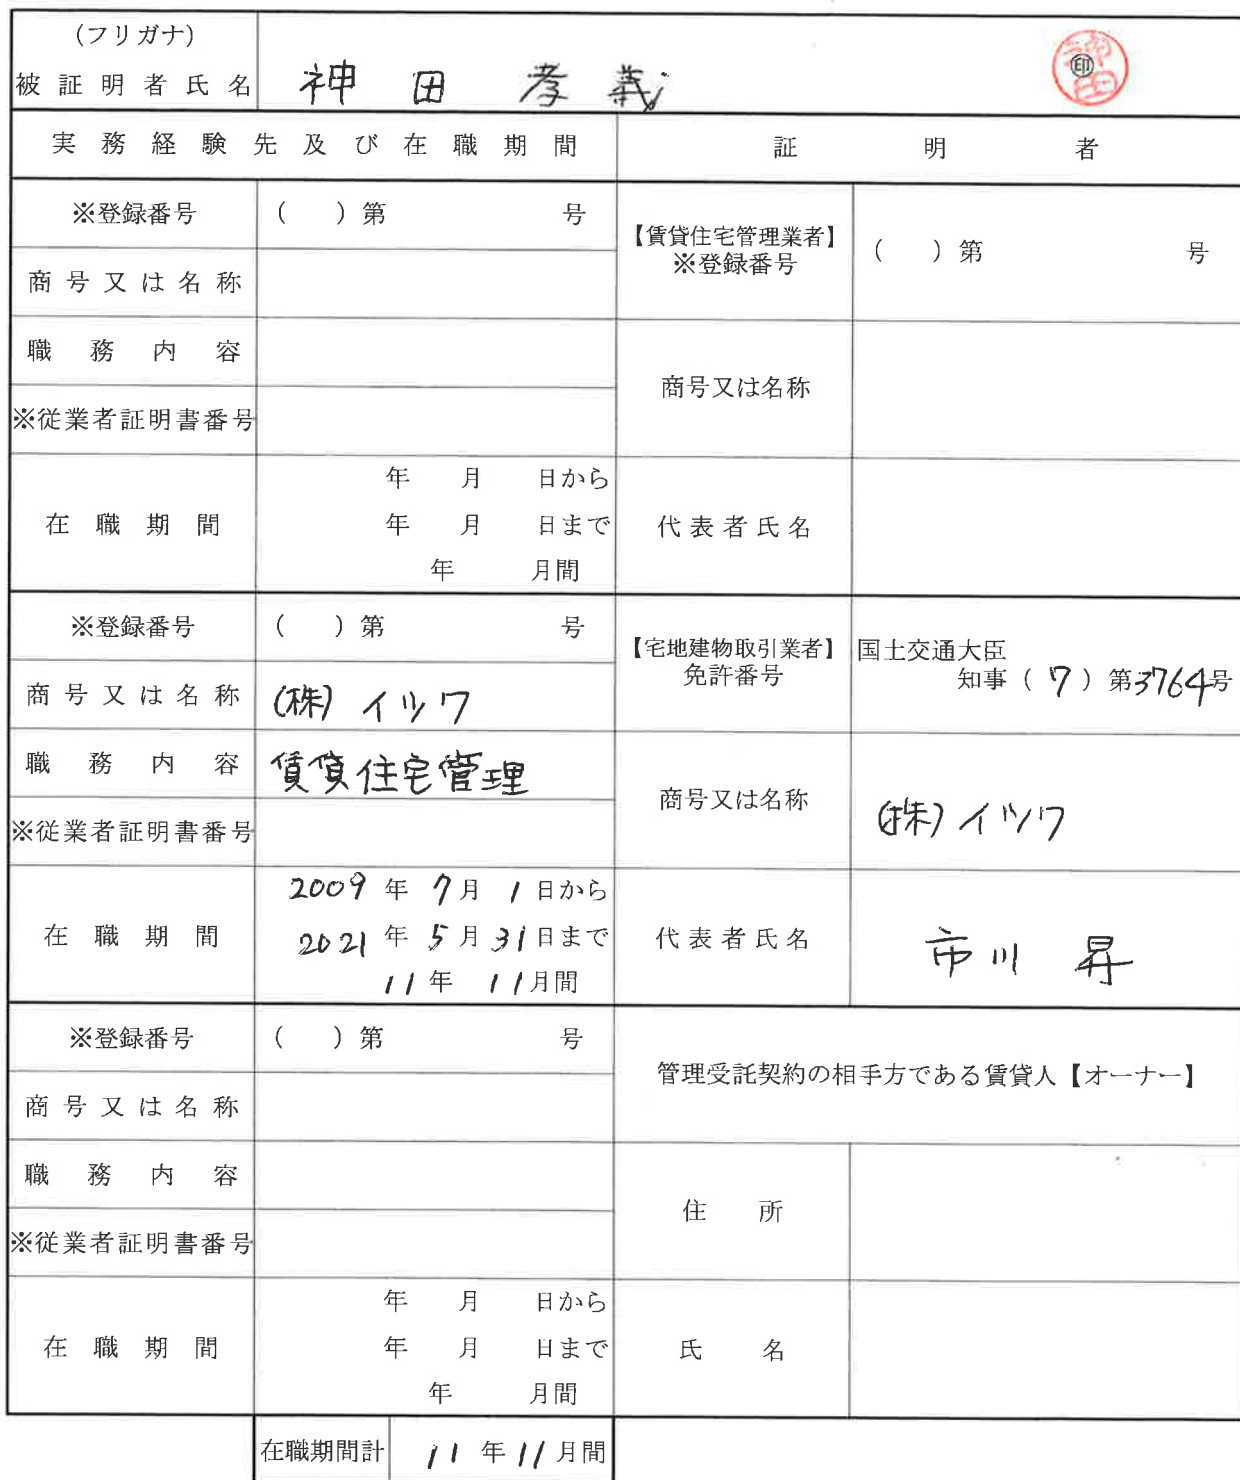 (フリガナ)
被証明者氏名 神田 孝義 ㊞ 神田
実務経験先及び在職期間 証明者
※登録番号 ( )第 号
【賃貸住宅管理業者】
※登録番号 ( )第 号
商号又は名称
職務内容
商号又は名称
※従業者証明書番号
在職期間
年 月 日から
年 月 日まで
年 月間
代表者氏名
※登録番号 ( )第 号
【宅地建物取引業者】
免許番号
国土交通大臣
知事(7)第3764号
商号又は名称 (株)イツワ
職務内容 賃貸住宅管理
商号又は名称 (株)イツワ
※従業者証明書番号
在職期間
2009年7月1日から
2021年5月31日まで
11年 11月間
代表者氏名 市川 昇
※登録番号 ( )第 号
管理受託契約の相手方である賃貸人【オーナー】
商号又は名称
職務内容
住所
※従業者証明書番号
在職期間
年 月 日から
年 月 日まで
年 月間
氏名
在職期間計 11年11月間